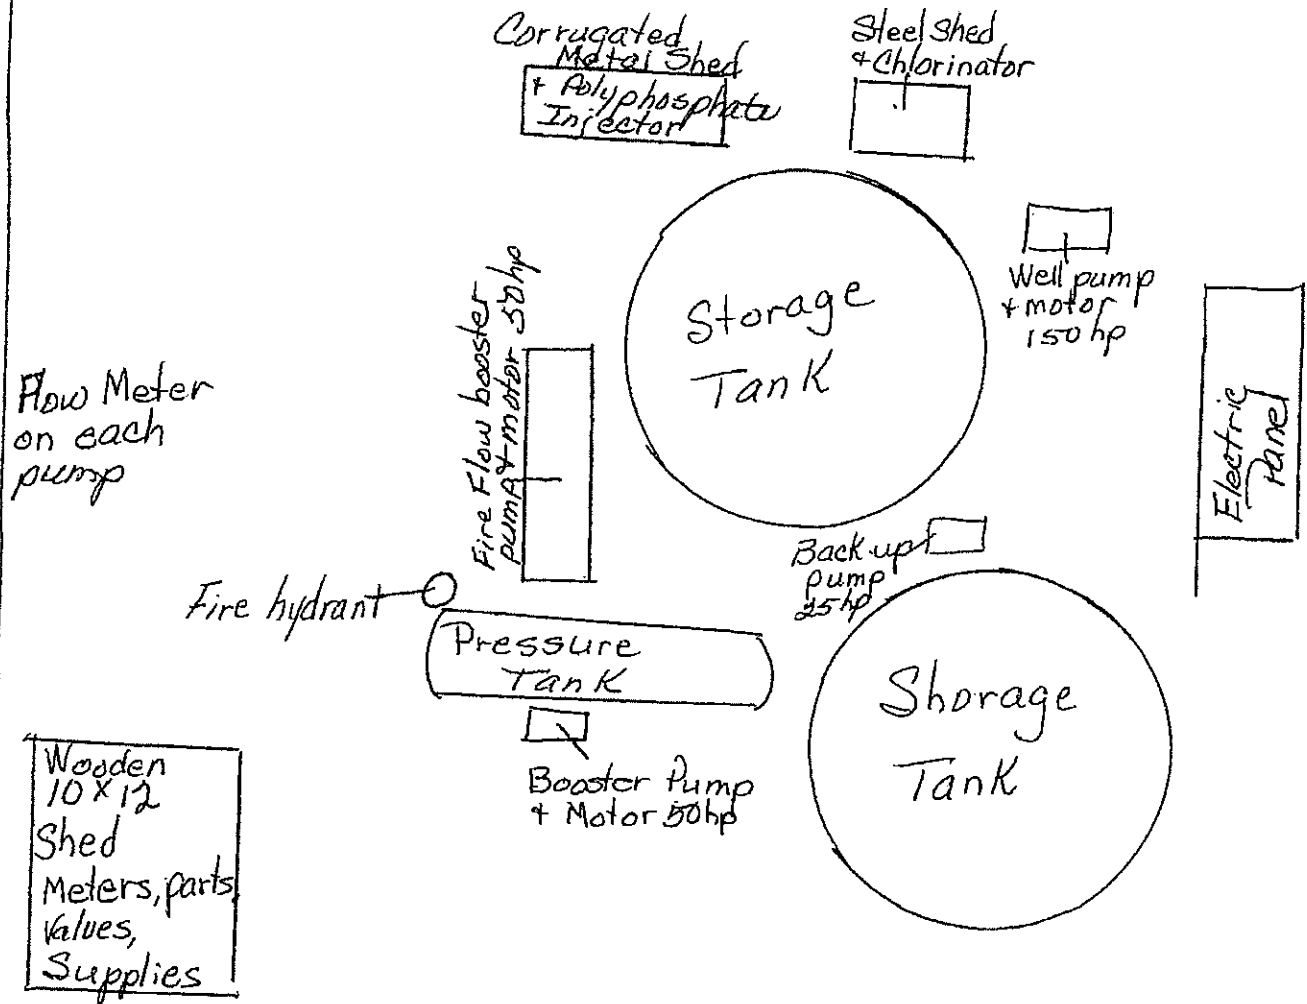 Corrugated
Metal Shed
+ Polyphosphate
Injector
Steel Shed
+ Chlorinator
Well pump
+ motor
150 hp
Storage
Tank
Fire Flow booster
pump + motor 50hp
Electric
Panel
Flow Meter
on each
pump
Back-up
pump
25hp
Fire hydrant
Pressure
Tank
Shorage
Tank
Booster Pump
+ Motor 50hp
Wooden
10 x 12
Shed
Meters, parts
Values,
Supplies